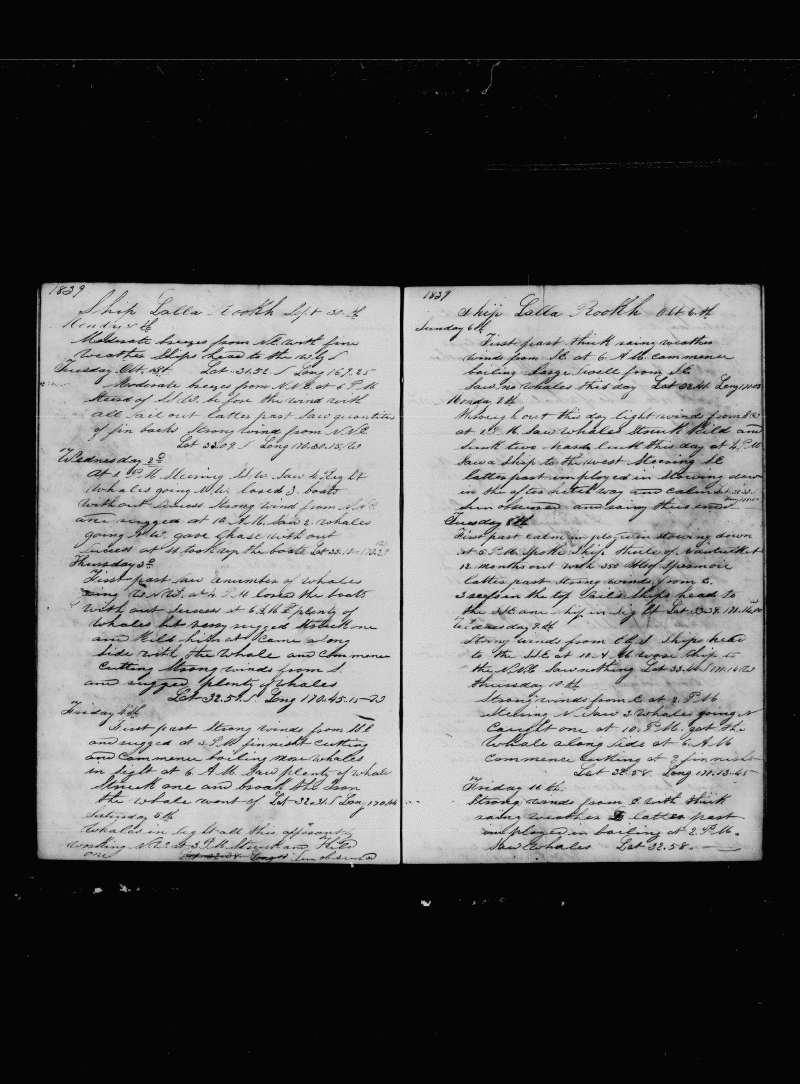 1839
Ship Lalla Rookh Sept 30th
Moderate breezes from N.E. with fine
weather Ships head to the W
Tuesday Oct. 1st Lat. 31.52 S Long 169.25
Moderate breezes from N.N.E. at 6 P.M
Steerd of S.W. before the wind with
all sail out latter part Saw quantities
of fin backs Strong wind from N.N.E
Lat 33.09 S Long 170.30.15 W
Wednesday 2d
At 1 P.M Steering S.W. Saw 4 right
whales going N.W. lowed 3 boats
without Success Strong wind from
and rugged at 10 A.M. Saw 2 whales
going N.W. gave Chase without
Success at 11 took up the boats Lat 33.13
Thursday 3d
First part Saw a number of whales
going at 4 P.M lowed the boats
with out Success at 6 plenty of
whales but very rugged Struck one
and kild him at Came along
Side with the whale and Commence
Cutting Strong winds from S.
and rugged plenty of whales
Lat 32.51 S Long 170.45.15 W
Friday 4th
First part Strong winds from
and rugged at 3 P.M finnisht Cutting
and commence boiling whales
in sight at 6 A.M Saw plenty of whales
Struck one and broak the Iron
the whale went of Lat 32.31 S Long 170.44
Saturday 5th
Whales in sight all this
working at 3 P.M Struck and Kild
one
1839
Ship Lalla Rookh Oct 6th
Sunday 6th
First part thick rainy weather
winds from at 6 A.M. commence
boiling large Swell from
Saw no whales this day Lat 32.41 Long
Monday 7th
Through out this day light winds from
at 2 P.M. Saw Whales Struck Kild and
Sunk two hard luck this day at 4 P.M
Saw a Ship to the west Steering
latter part imployed in Stowing down
in the after hatch way and calm
Sun obscured and rainy thus ends
Tuesday 8th
First part calm imployd in Stowing down
at 5 P.M. Spoke Ship of Nantucket
12 months out with 350 bbls of Spermoil
latter part Strong winds from E.
3 reefs in the top Sails Ships head to
the S.E. one Ship in Sight Lat
Wednesday 9th
Strong winds from Ships head
to the S.E. at 10 A.M wore Ship to
the N.N.E. Saw nothing Lat
Thursday 10th
Strong winds from E. at 2 P.M
Steering N. Saw 3 whales going
Caught one at 10 P.M. got the
Whale along Side at 6 A.M
commence Cutting at finnisht
Lat 32.58 Long 171.13.45
Friday 11th
Strong winds from E. with thick
rainy weather latter part
imployed in boiling at 2 P.M.
Saw Whales Lat 32.58.